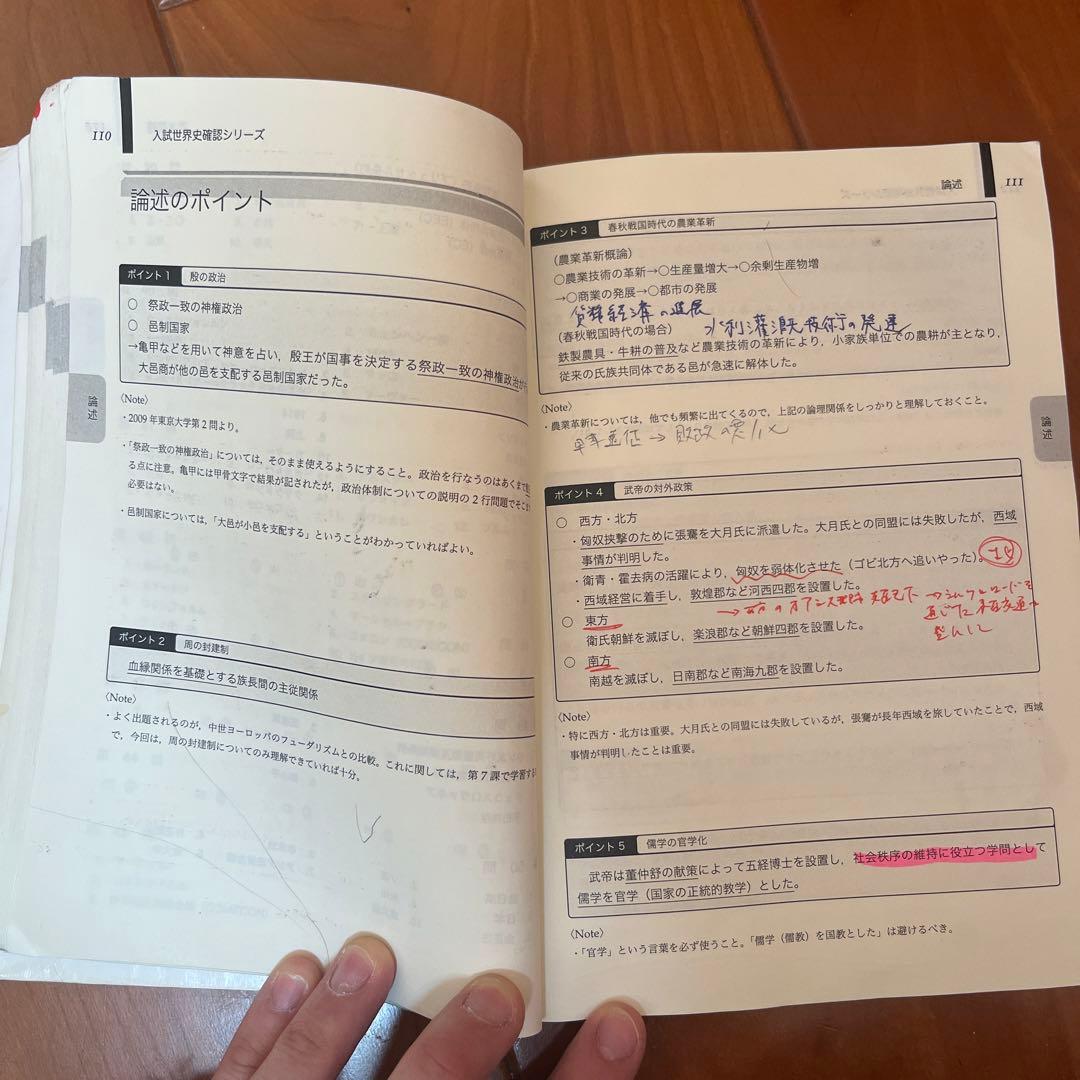 110
入試世界史確認シリーズ
論述のポイント
ポイント1 殷の政治
○ 祭政一致の神権政治
○ 邑制国家
→亀甲などを用いて神意を占い，殷王が国事を決定する祭政一致の神権政治
大邑商が他の邑を支配する邑制国家だった。
〈Note〉
・2009年東京大学第2問より。
・「祭政一致の神権政治」については，そのまま使えるようにすること。政治を行なうのはあくまで
る点に注意。亀甲には甲骨文字で結果が記されたが，政治体制についての説明の2行問題でそこま
必要はない。
・邑制国家については，「大邑が小邑を支配する」ということがわかっていればよい。
論述
ポイント2 周の封建制
血縁関係を基礎とする族長間の主従関係
〈Note〉
・よく出題されるのが，中世ヨーロッパのフューダリズムとの比較。これに関しては，第7課で学習する
で，今回は，周の封建制についてのみ理解できていれば十分。
論述
111
ポイント3 春秋戦国時代の農業革新
（農業革新概論）
○農業技術の革新→○生産量増大→○余剰生産物増
→○商業の発展→○都市の発展
貨幣経済の進展
（春秋戦国時代の場合） 水利灌漑技術の発達
鉄製農具・牛耕の普及など農業技術の革新により，小家族単位での農耕が主となり，
従来の氏族共同体である邑が急速に解体した。
〈Note〉
・農業革新については，他でも頻繁に出てくるので，上記の論理関係をしっかりと理解しておくこと。
論述
ポイント4 武帝の対外政策
○ 西方・北方
・匈奴挟撃のために張騫を大月氏に派遣した。大月氏との同盟には失敗したが，西域
事情が判明した。
・衛青・霍去病の活躍により，匈奴を弱体化させた（ゴビ北方へ追いやった）。
・西域経営に着手し，敦煌郡など河西四郡を設置した。
○ 東方
衛氏朝鮮を滅ぼし，楽浪郡など朝鮮四郡を設置した。
○ 南方
南越を滅ぼし，日南郡など南海九郡を設置した。
〈Note〉
・特に西方・北方は重要。大月氏との同盟には失敗しているが，張騫が長年西域を旅していたことで，西域
事情が判明したことは重要。
ポイント5 儒学の官学化
武帝は董仲舒の献策によって五経博士を設置し，社会秩序の維持に役立つ学問として
儒学を官学（国家の正統的教学）とした。
〈Note〉
・「官学」という言葉を必ず使うこと。「儒学（儒教）を国教とした」は避けるべき。